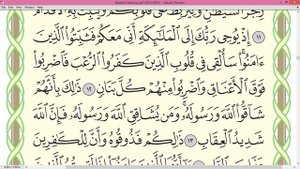 Adobe Reader
رِجْزَ ٱلشَّيْطَٰنِ وَلِيَرْبِطَ عَلَىٰ قُلُوبِكُمْ وَيُثَبِّتَ بِهِ ٱلْأَقْدَامَ
١١ إِذْ يُوحِى رَبُّكَ إِلَى ٱلْمَلَٰٓئِكَةِ أَنِّى مَعَكُمْ فَثَبِّتُوا۟ ٱلَّذِينَ
ءَامَنُوا۟ سَأُلْقِى فِى قُلُوبِ ٱلَّذِينَ كَفَرُوا۟ ٱلرُّعْبَ فَٱضْرِبُوا۟
فَوْقَ ٱلْأَعْنَاقِ وَٱضْرِبُوا۟ مِنْهُمْ كُلَّ بَنَانٍ ١٢ ذَٰلِكَ بِأَنَّهُمْ
شَآقُّوا۟ ٱللَّهَ وَرَسُولَهُۥ وَمَن يُشَاقِقِ ٱللَّهَ وَرَسُولَهُۥ فَإِنَّ ٱللَّهَ
شَدِيدُ ٱلْعِقَابِ ١٣ ذَٰلِكُمْ فَذُوقُوهُ وَأَنَّ لِلْكَٰفِرِينَ